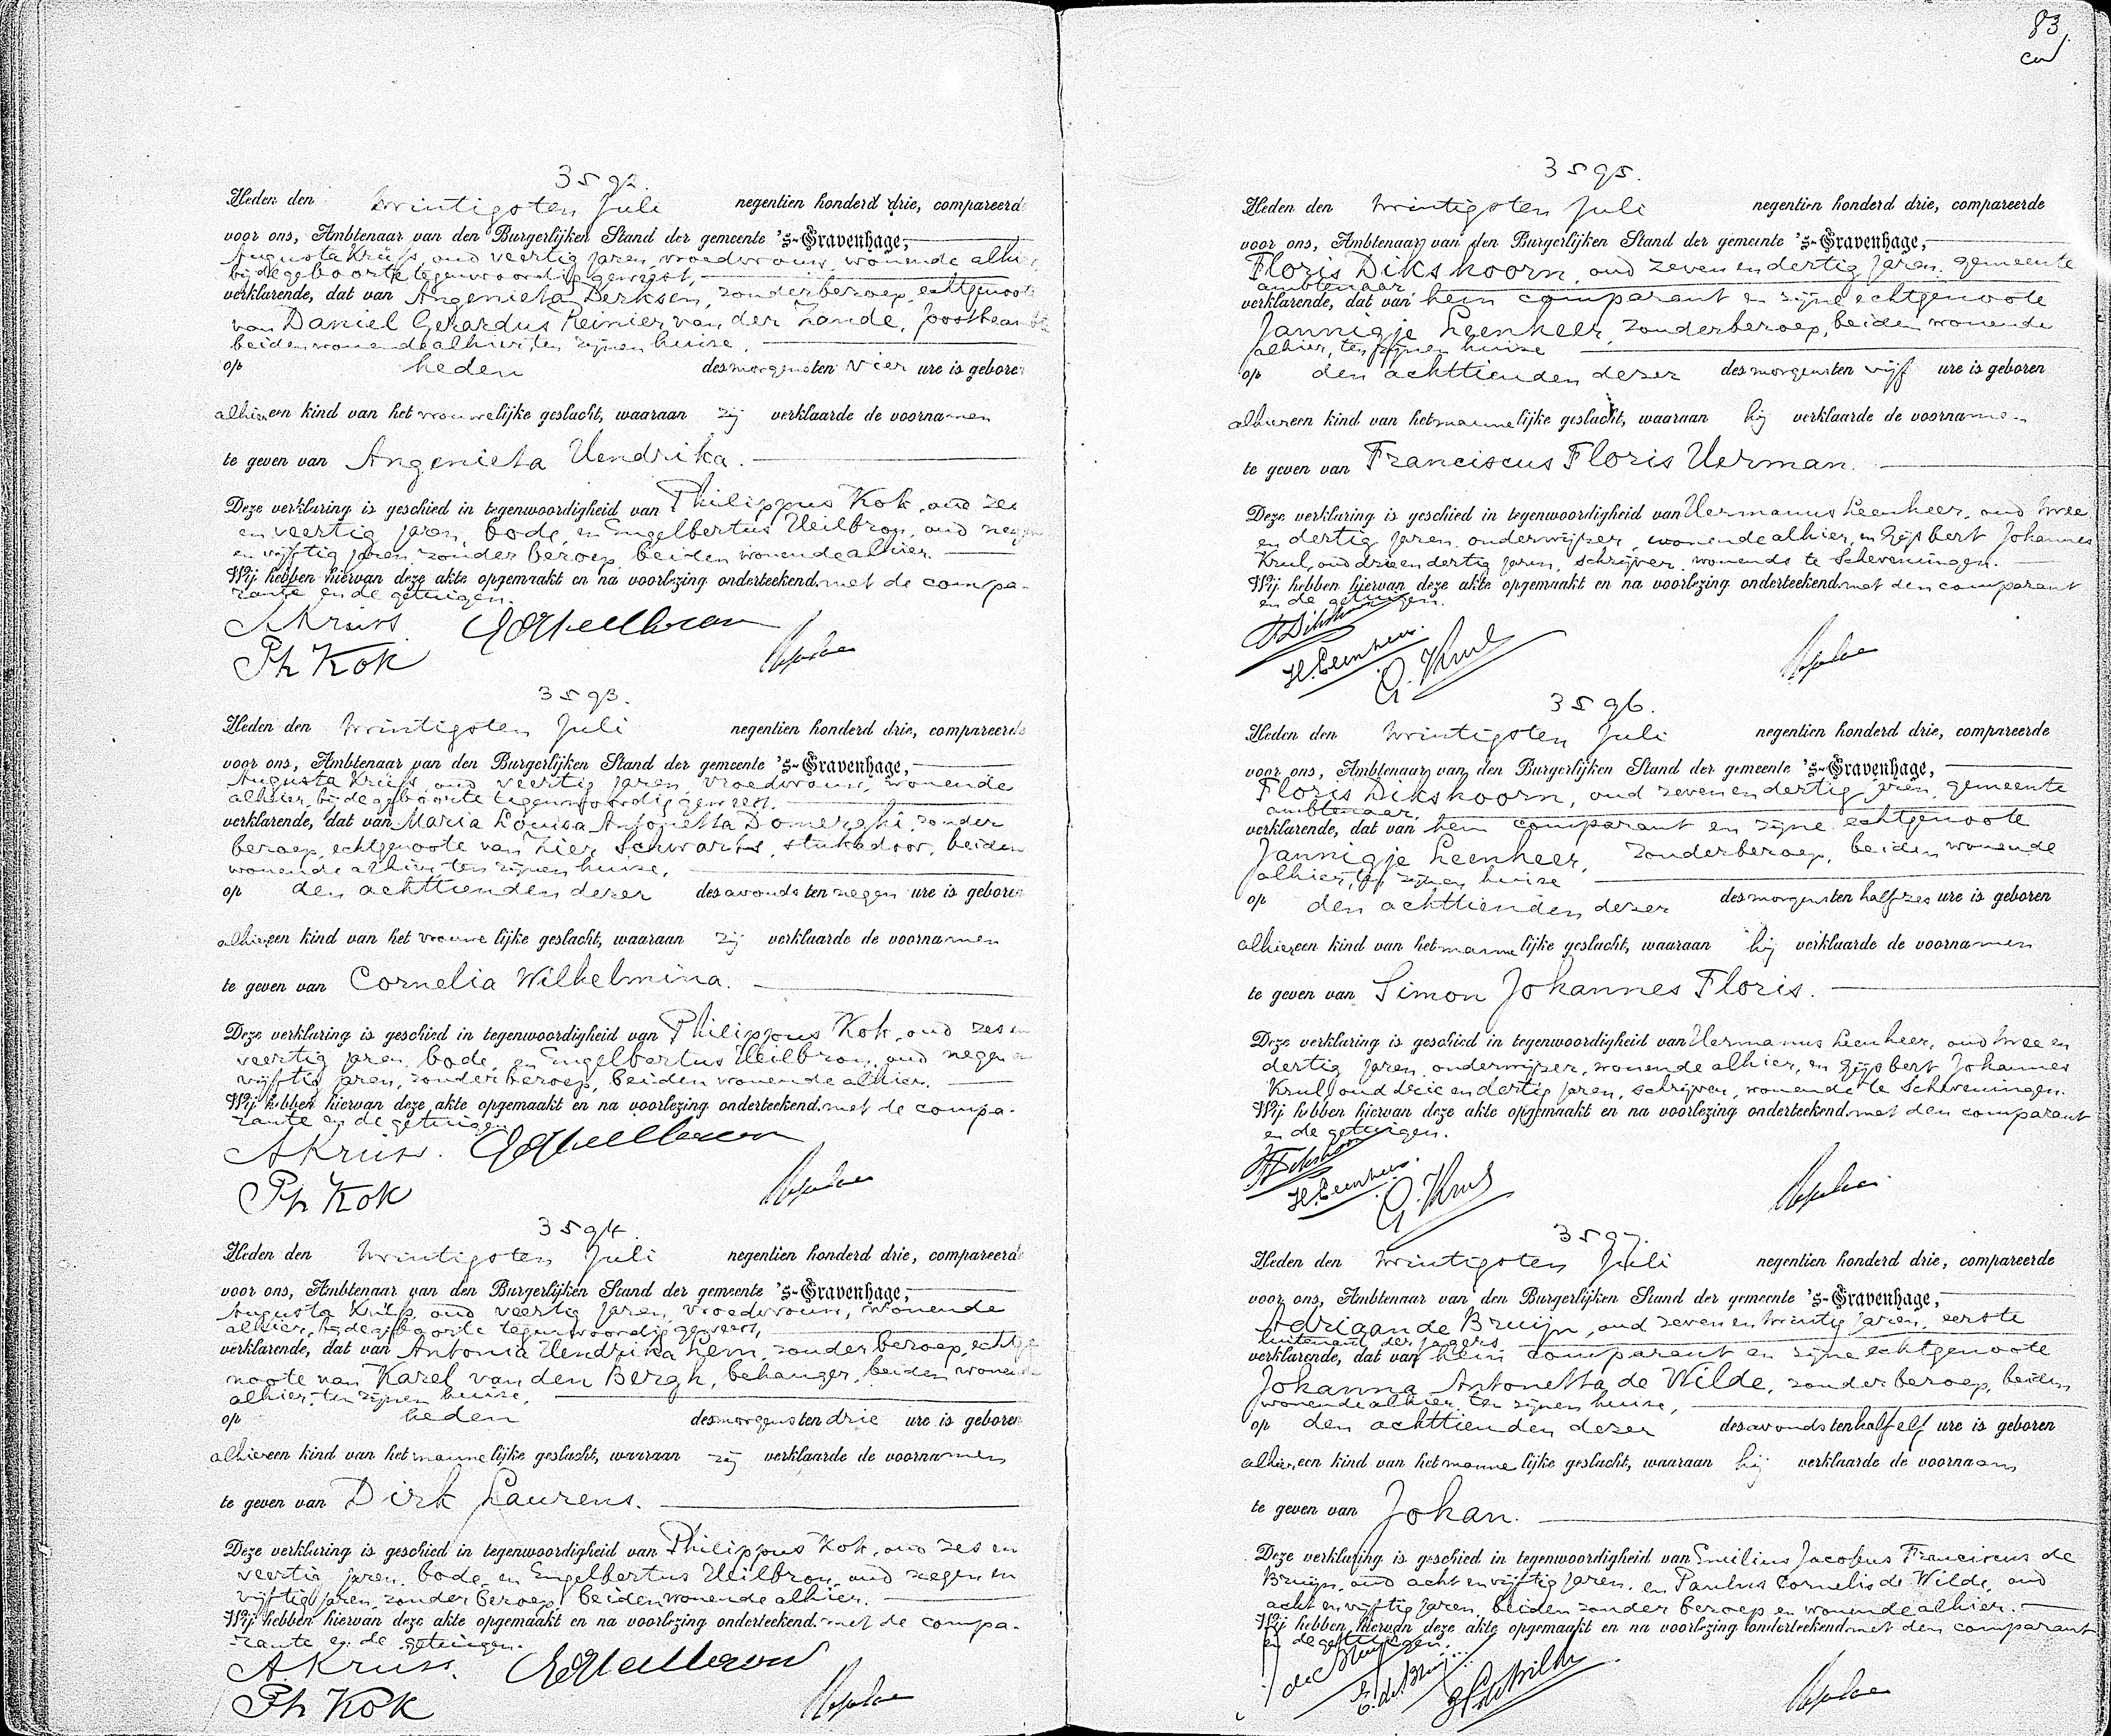 3592.
Heden den twintigsten Juli negentien honderd drie, compareerde
voor ons, Ambtenaar van den Burgerlijken Stand der gemeente 's-Gravenhage,
Augusta Krüss, oud veertig jaren, vroedvrouw, wonende alhier,
bij de geboorte tegenwoordig geweest,
verklarende, dat van Angenieta Derksen, zonder beroep, echtgenoote
van Daniel Gerardus Reinier van der Zande, postbeambte
beiden wonende alhier, ten zijnen huize,
op heden des morgens ten vier ure is geboren
alhier een kind van het vrouwelijke geslacht, waaraan zij verklaarde de voornamen
te geven van Angenieta Hendrika.
Deze verklaring is geschied in tegenwoordigheid van Philippus Kok, oud zes
en veertig jaren, bode, en Engelbertus Heilbron, oud negen
en vijftig jaren, zonder beroep, beiden wonende alhier.
Wij hebben hiervan deze akte opgemaakt en na voorlezing onderteekend met de compa-
rante en de getuigen.
AKrüss.
Ph Kok
3593.
Heden den twintigsten Juli negentien honderd drie, compareerde
voor ons, Ambtenaar van den Burgerlijken Stand der gemeente 's-Gravenhage,
Augusta Krüss, oud veertig jaren, vroedvrouw, wonende
alhier, bij de geboorte tegenwoordig geweest,
verklarende, dat van Maria Louisa Antonetta Domerghi, zonder
beroep, echtgenoote van Lier Schwarts, stukadoor, beiden
wonende alhier, ten zijnen huize,
op den achttienden dezer des avonds ten negen ure is geboren
alhier een kind van het vrouwelijke geslacht, waaraan zij verklaarde de voornamen
te geven van Cornelia Wilhelmina.
Deze verklaring is geschied in tegenwoordigheid van Philippus Kok, oud zes en
veertig jaren, bode, en Engelbertus Heilbron, oud negen en
vijftig jaren, zonder beroep, beiden wonende alhier.
Wij hebben hiervan deze akte opgemaakt en na voorlezing onderteekend met de compa-
rante en de getuigen
AKrüss.
Ph Kok
3594.
Heden den twintigsten Juli negentien honderd drie, compareerde
voor ons, Ambtenaar van den Burgerlijken Stand der gemeente 's-Gravenhage,
Augusta Krüss, oud veertig jaren, vroedvrouw, wonende
alhier, bij de geboorte tegenwoordig geweest,
verklarende, dat van Antonia Hendrika Lem, zonder beroep, echtge
noote van Karel van den Bergh, behanger, beiden wonende
alhier, ten zijnen huize,
op heden des morgens ten drie ure is geboren
alhier een kind van het mannelijke geslacht, waaraan zij verklaarde de voornamen
te geven van Dirk Laurens.
Deze verklaring is geschied in tegenwoordigheid van Philippus Kok, oud zes en
veertig jaren, bode, en Engelbertus Heilbron, oud negen en
vijftig jaren, zonder beroep, beiden wonende alhier.
Wij hebben hiervan deze akte opgemaakt en na voorlezing onderteekend met de compa-
rante en de getuigen.
AKrüss.
Ph Kok
83
3595.
Heden den twintigsten Juli negentien honderd drie, compareerde
voor ons, Ambtenaar van den Burgerlijken Stand der gemeente 's-Gravenhage,
Floris Dikshoorn, oud zeven en dertig jaren, gemeente
ambtenaar,
verklarende, dat van hem comparant en zijne echtgenoote
Jannigje Leenheer, zonder beroep, beiden wonende
alhier, ten zijnen huize
op den achttienden dezer des morgens ten vijf ure is geboren
alhier een kind van het mannelijke geslacht, waaraan hij verklaarde de voornamen
te geven van Franciscus Floris Herman.
Deze verklaring is geschied in tegenwoordigheid van Hermanus Leenheer, oud twee
en dertig jaren, onderwijzer, wonende alhier, en Gijsbert Johannes
Krul, oud drie en dertig jaren, schrijver, wonende te Scheveningen.
Wij hebben hiervan deze akte opgemaakt en na voorlezing onderteekend met den comparant
en de getuigen.
H. Leenheer.
G. Krul
3596.
Heden den twintigsten Juli negentien honderd drie, compareerde
voor ons, Ambtenaar van den Burgerlijken Stand der gemeente 's-Gravenhage,
Floris Dikshoorn, oud zeven en dertig jaren, gemeente
ambtenaar,
verklarende, dat van hem comparant en zijne echtgenoote
Jannigje Leenheer, zonder beroep, beiden wonende
alhier, ten zijnen huize
op den achttienden dezer des morgens ten half zes ure is geboren
alhier een kind van het mannelijke geslacht, waaraan hij verklaarde de voornamen
te geven van Simon Johannes Floris.
Deze verklaring is geschied in tegenwoordigheid van Hermanus Leenheer, oud twee en
dertig jaren, onderwijzer, wonende alhier, en Gijsbert Johannes
Krul, oud drie en dertig jaren, schrijver, wonende te Scheveningen.
Wij hebben hiervan deze akte opgemaakt en na voorlezing onderteekend met den comparant
en de getuigen.
H. Leenheer.
G. Krul
3597.
Heden den twintigsten Juli negentien honderd drie, compareerde
voor ons, Ambtenaar van den Burgerlijken Stand der gemeente 's-Gravenhage,
Adriaan de Bruijn, oud zeven en twintig jaren, eerste
luitenant der jagers
verklarende, dat van hem comparant en zijne echtgenoote
Johanna Antonetta de Wilde, zonder beroep, beiden
wonende alhier, ten zijnen huize,
op den achttienden dezer des avonds ten half elf ure is geboren
alhier een kind van het mannelijke geslacht, waaraan hij verklaarde de voornaam
te geven van Johan.
Deze verklaring is geschied in tegenwoordigheid van Emilius Jacobus Franciscus de
Bruijn, oud acht en vijftig jaren, en Paulus Cornelis de Wilde, oud
acht en vijftig jaren, beiden zonder beroep en wonende alhier.
Wij hebben hiervan deze akte opgemaakt en na voorlezing onderteekend met den comparant
en de getuigen.